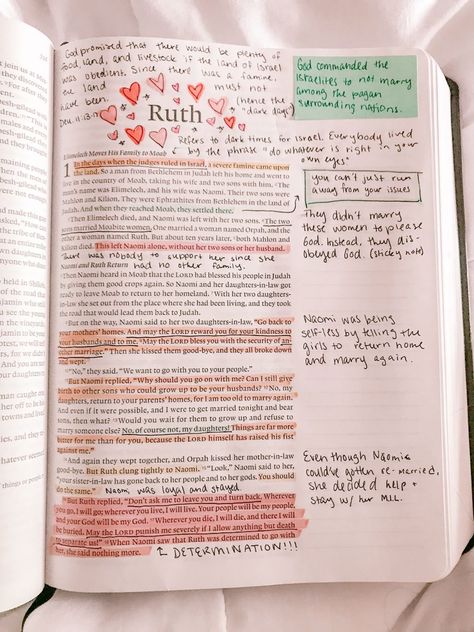 God promised that there would be plenty of
food, land, and livestock if the land of Israel
was obedient. Since there was a famine,
the land must not
have been. (hence the
Deu. 11:8-17 "dark days")
God commanded the
Israelites to not marry
among the pagan
surrounding nations.
Ruth
Refers to dark times for Israel. Everybody lived
by the phrase "do whatever is right in your
own eyes"
Elimelech Moves His Family to Moab
1 In the days when the judges ruled in Israel, a severe famine came upon
the land. So a man from Bethlehem in Judah left his home and went to
live in the country of Moab, taking his wife and two sons with him. 2The
man's name was Elimelech, and his wife was Naomi. Their two sons were
Mahlon and Kilion. They were Ephrathites from Bethlehem in the land of
Judah. And when they reached Moab, they settled there.
3Then Elimelech died, and Naomi was left with her two sons. 4The two
sons married Moabite women. One married a woman named Orpah, and the
other a woman named Ruth. But about ten years later, 5both Mahlon and
Kilion died. This left Naomi alone, without her two sons or her husband.
There was nobody to support her since she
had no other family.
you can't just run
away from your issues
They didn't marry
these women to please
God. Instead, they dis-
obeyed God. (sticky note)
Naomi and Ruth Return
6Then Naomi heard in Moab that the LORD had blessed his people in Judah
by giving them good crops again. So Naomi and her daughters-in-law got
ready to leave Moab to return to her homeland. 7With her two daughters-
in-law she set out from the place where she had been living, and they took
the road that would lead them back to Judah.
8But on the way, Naomi said to her two daughters-in-law, "Go back to
your mothers' homes. And may the LORD reward you for your kindness to
your husbands and to me. 9May the LORD bless you with the security of an-
other marriage." Then she kissed them good-bye, and they all broke down
and wept.
Naomi was being
self-less by telling the
girls to return home
and marry again.
10"No," they said. "We want to go with you to your people."
11But Naomi replied, "Why should you go on with me? Can I still give
birth to other sons who could grow up to be your husbands? 12No, my
daughters, return to your parents' homes, for I am too old to marry again.
And even if it were possible, and I were to get married tonight and bear
sons, then what? 13Would you wait for them to grow up and refuse to
marry someone else? No, of course not, my daughters! Things are far more
bitter for me than for you, because the LORD himself has raised his fist
against me."
14And again they wept together, and Orpah kissed her mother-in-law
good-bye. But Ruth clung tightly to Naomi. 15"Look," Naomi said to her,
"your sister-in-law has gone back to her people and to her gods. You should
do the same." Naomi was loyal and stayed
Even though Naomi
could've gotten re-married,
she decided help +
stay w/ her MIL.
16But Ruth replied, "Don't ask me to leave you and turn back. Wherever
you go, I will go; wherever you live, I will live. Your people will be my people,
and your God will be my God. 17Wherever you die, I will die, and there I will
be buried. May the LORD punish me severely if I allow anything but death
to separate us!" 18When Naomi saw that Ruth was determined to go with
her, she said nothing more.
DETERMINATION!!!